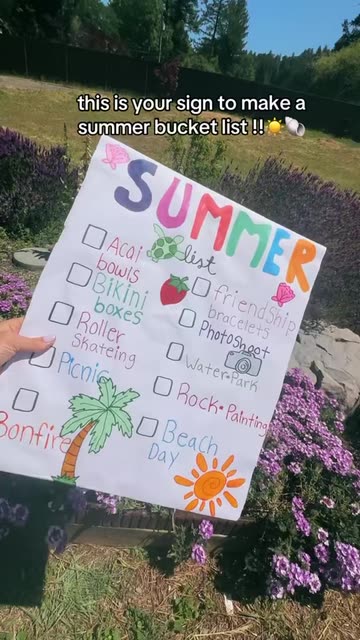 this is your sign to make a
summer bucket list !!☀️🐚
SUMMER
list
Acai
bowls
Bikini
boxes
Roller
Skateing
Picnic
Bonfire
friendship
bracelets
Photoshoot
Water•Park
Rock•Painting
Beach
Day